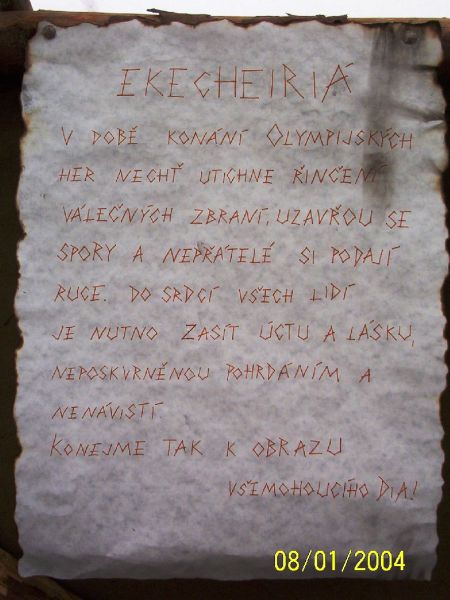 EKECHEIRIÁ
V DOBĚ KONÁNÍ OLYMPIJSKÝCH
HER NECHŤ UTICHNE ŘINČENÍ
VÁLEČNÝCH ZBRANÍ, UZAVŘOU SE
SPORY A NEPŘÁTELÉ SI PODAJÍ
RUCE. DO SRDCÍ VŠECH LIDÍ
JE NUTNO ZASÍT ÚCTU A LÁSKU,
NEPOSKVRNĚNOU POHRDÁNÍM A
NENÁVISTÍ
KONEJME TAK K OBRAZU
VŠEMOHOUCÍHO DIA!
08/01/2004